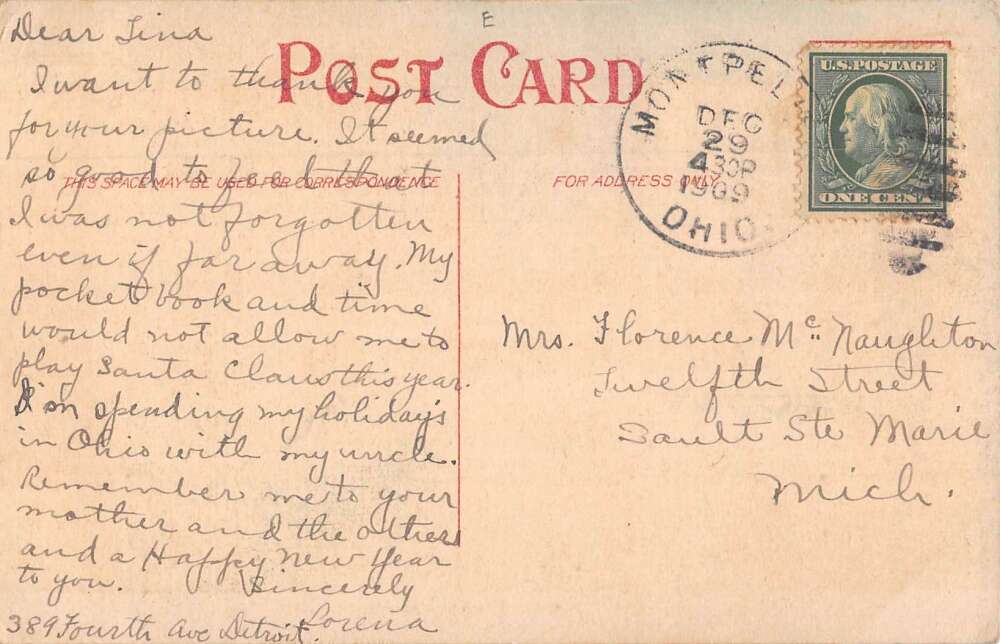 E
Dear Lina
I want to thank you
for your picture. It seemed
so good to feel that
I was not forgotten
even if far away. My
pocket book and time
would not allow me to
play Santa Claus this year.
I'm spending my holidays
in Ohio with my uncle.
Remember me to your
mother and the others
and a Happy New Year
to you. Sincerely
Lorena
389 Fourth Ave Detroit.
POST CARD
THIS SPACE MAY BE USED FOR CORRESPONDENCE
FOR ADDRESS ONLY
MONTPEL
DEC
29
430P
1909
OHIO.
U.S. POSTAGE
ONE CENT
Mrs. Florence Mc Naughton
Twelfth Street
Sault Ste Marie
Mich.